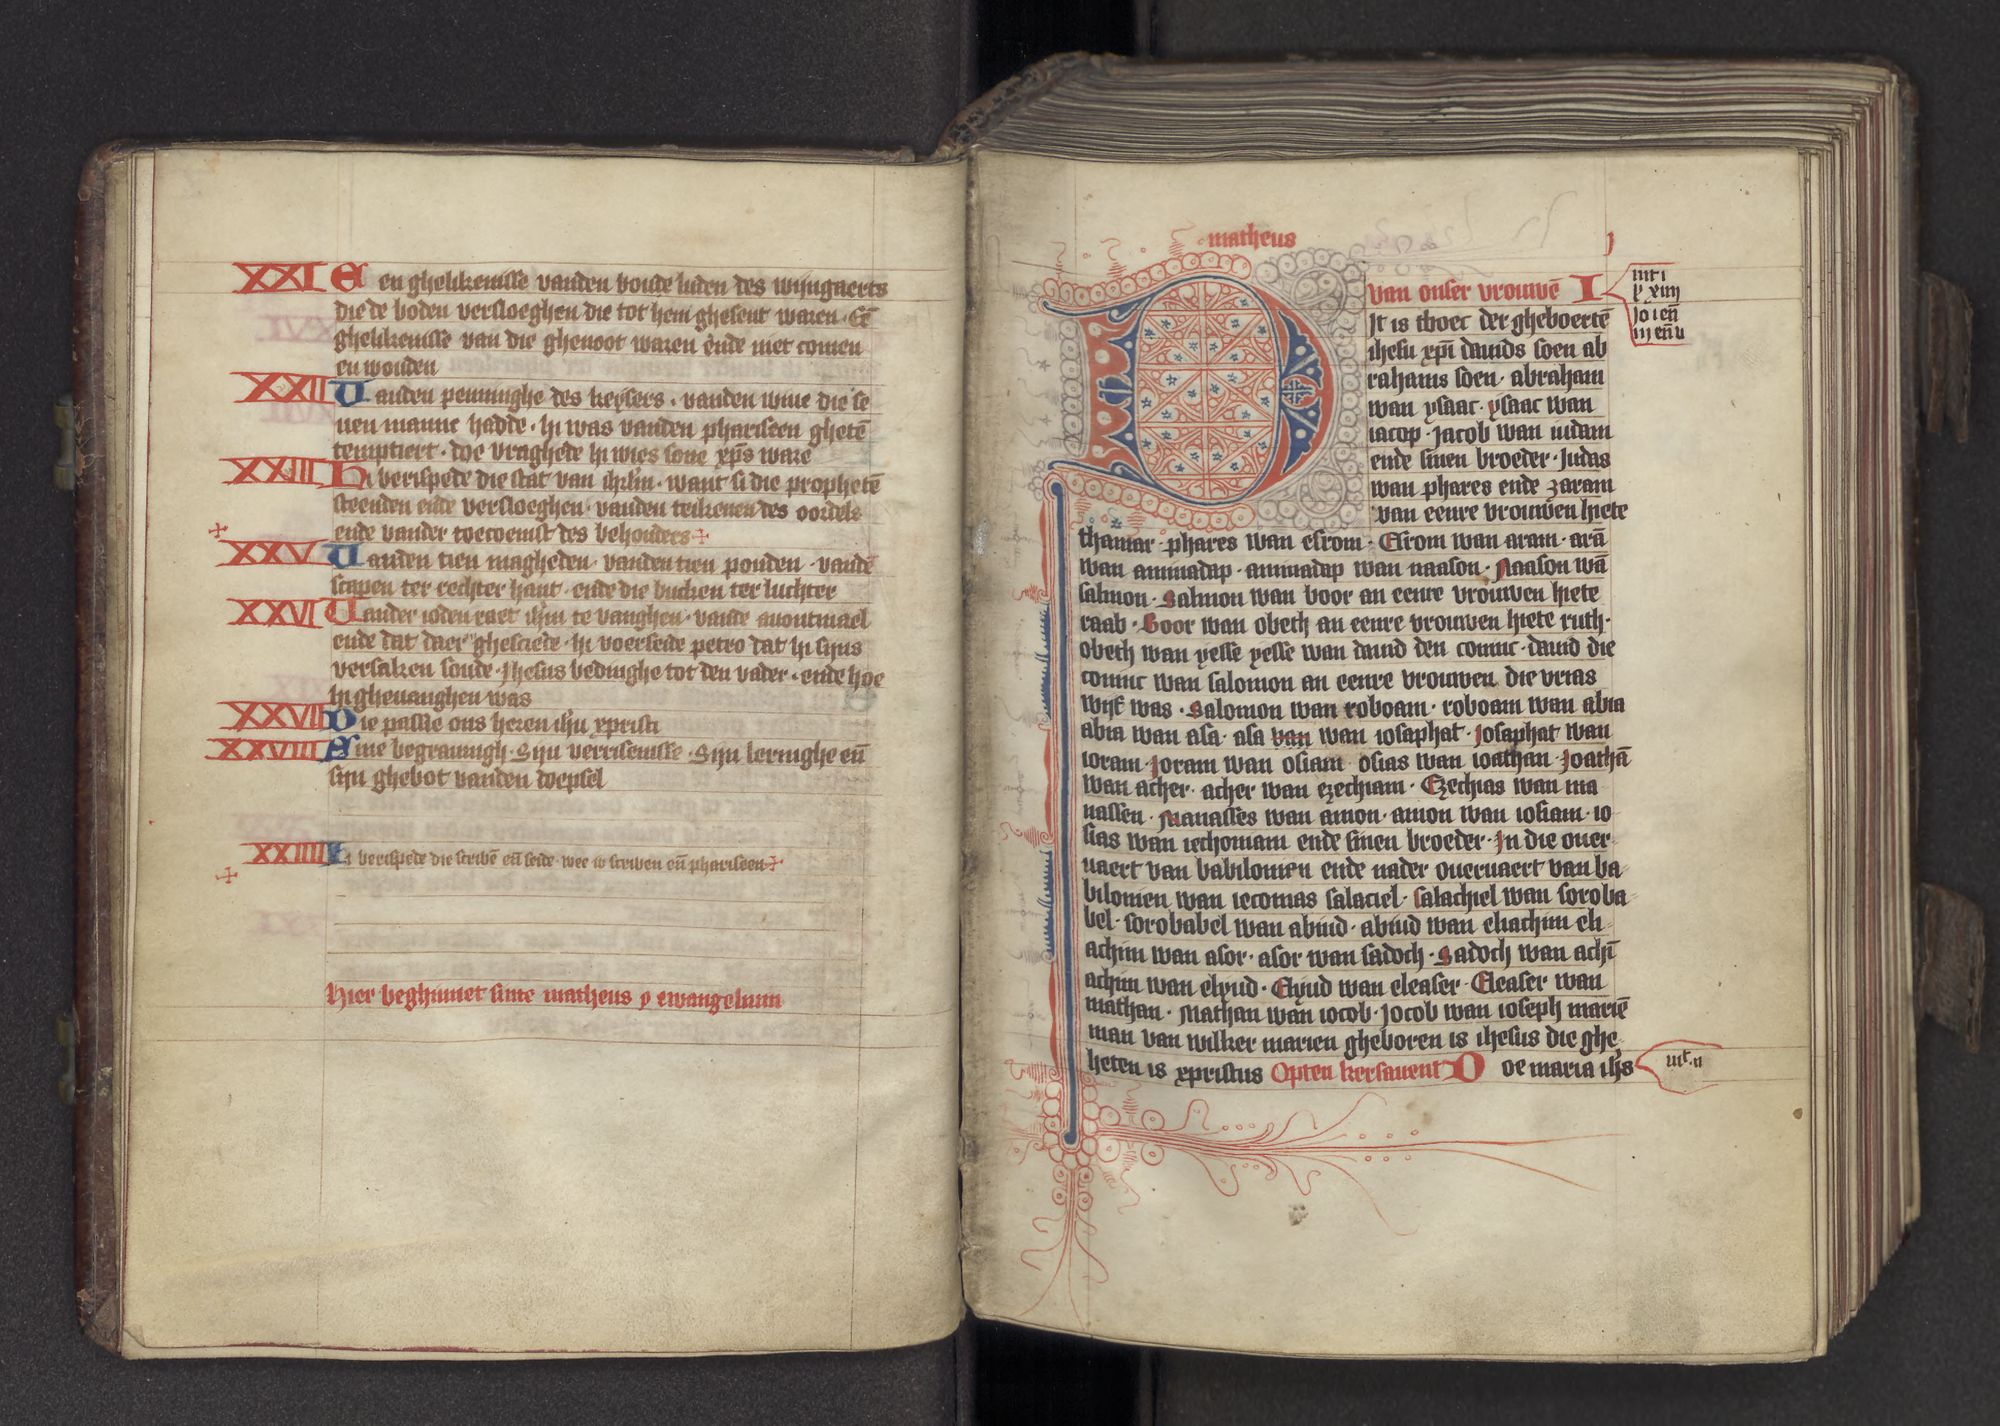 XXI Een ghelikenisse vanden boude luden des wijngaerts
die de boden versloeghen die tot hem ghesent waren · Ee̅
ghelikenisse van die ghenoot waren ende niet comen
en wouden
XXII Vanden penninghe des keysers · vanden wiue die se
uen manne hadde · hi was vanden phariseen ghete̅
temptiert · doe vraghede hi wies sone xp̅s ware
XXIII Hi berispede die stat van ihrl̅m · want si die prophete̅
steenden ende versloeghen · vanden teikenen des oordels
ende vander toecoemst des behouders
XXV Vanden tien magheden · vanden tien ponden · vande̅
scapen ter rechter hant · ende die bucken ter luchter
XXVI Vander ioden raet ih̅m te vanghen · vande auontmael
ende dat daer ghesciede · hi voerseide petro dat hi sijns
versaken soude · Jhesus bedinghe tot den vader · ende hoe
hi gheuanghen was
XXVII Die passie ons heren ih̅u xpristi
XXVIII Sine begrauingh · Sijn verrisenisse · Sijn leringhe en̅
sijn ghebot vanden doepsel
XXIIII Hi berispede die scribe̅ en̅ seide · wee iv scriben en̅ phariseen
Hier beghinnet sinte matheus ewangelium
matheus
van onser vrouwe̅ I
Dit is tboec der gheboerte̅
ihesu xpi̅ dauids soen ab
rahams soen · abraham
wan ysaac · ysaac wan
iacop · Jacob wan iudam
ende sinen broeder · Judas
wan phares ende zaram
van eenre vrouwen hiete
thamar · phares wan esrom · Esrom wan aram · ara̅
wan aminadap · aminadap wan naason · Naason wa̅
salmon · Salmon wan boor an eenre vrouwen hiete
raab · Boor wan obeth an eenre vrouwen hiete ruth ·
obeth wan yesse yesse wan dauid den coninc · dauid die
coninc wan salomon an eenre vrouwen die vrias
wijf was · Salomon wan roboam · roboam wan abia
abia wan asa · asa van wan iosaphat · Josaphat wan
ioram · Joram wan osiam osias wan ioathan · Joatha̅
wan acher · acher wan ezechiam · Ezechias wan ma
nassen · Manasses wan amon · amon wan iosiam · io
sias wan iechoniam ende sinen broeder · In die ouer
uaert van babilonien ende nader oueruaert van ba
bilonien wan ieconias salaciel · salachiel wan soroba
bel · sorobabel wan abiud · abiud wan eliachim eli
achim wan asor · asor wan sadoch · Sadoch wan achi̅
achim wan elyud · Elyud wan eleaser · Eleaser wan
mathan · Mathan wan iocob · Jocob wan ioseph marie̅
man van wilker marien gheboren is ihesus die ghe
heten is xpristus Opten kersauent Doe maria ih̅s